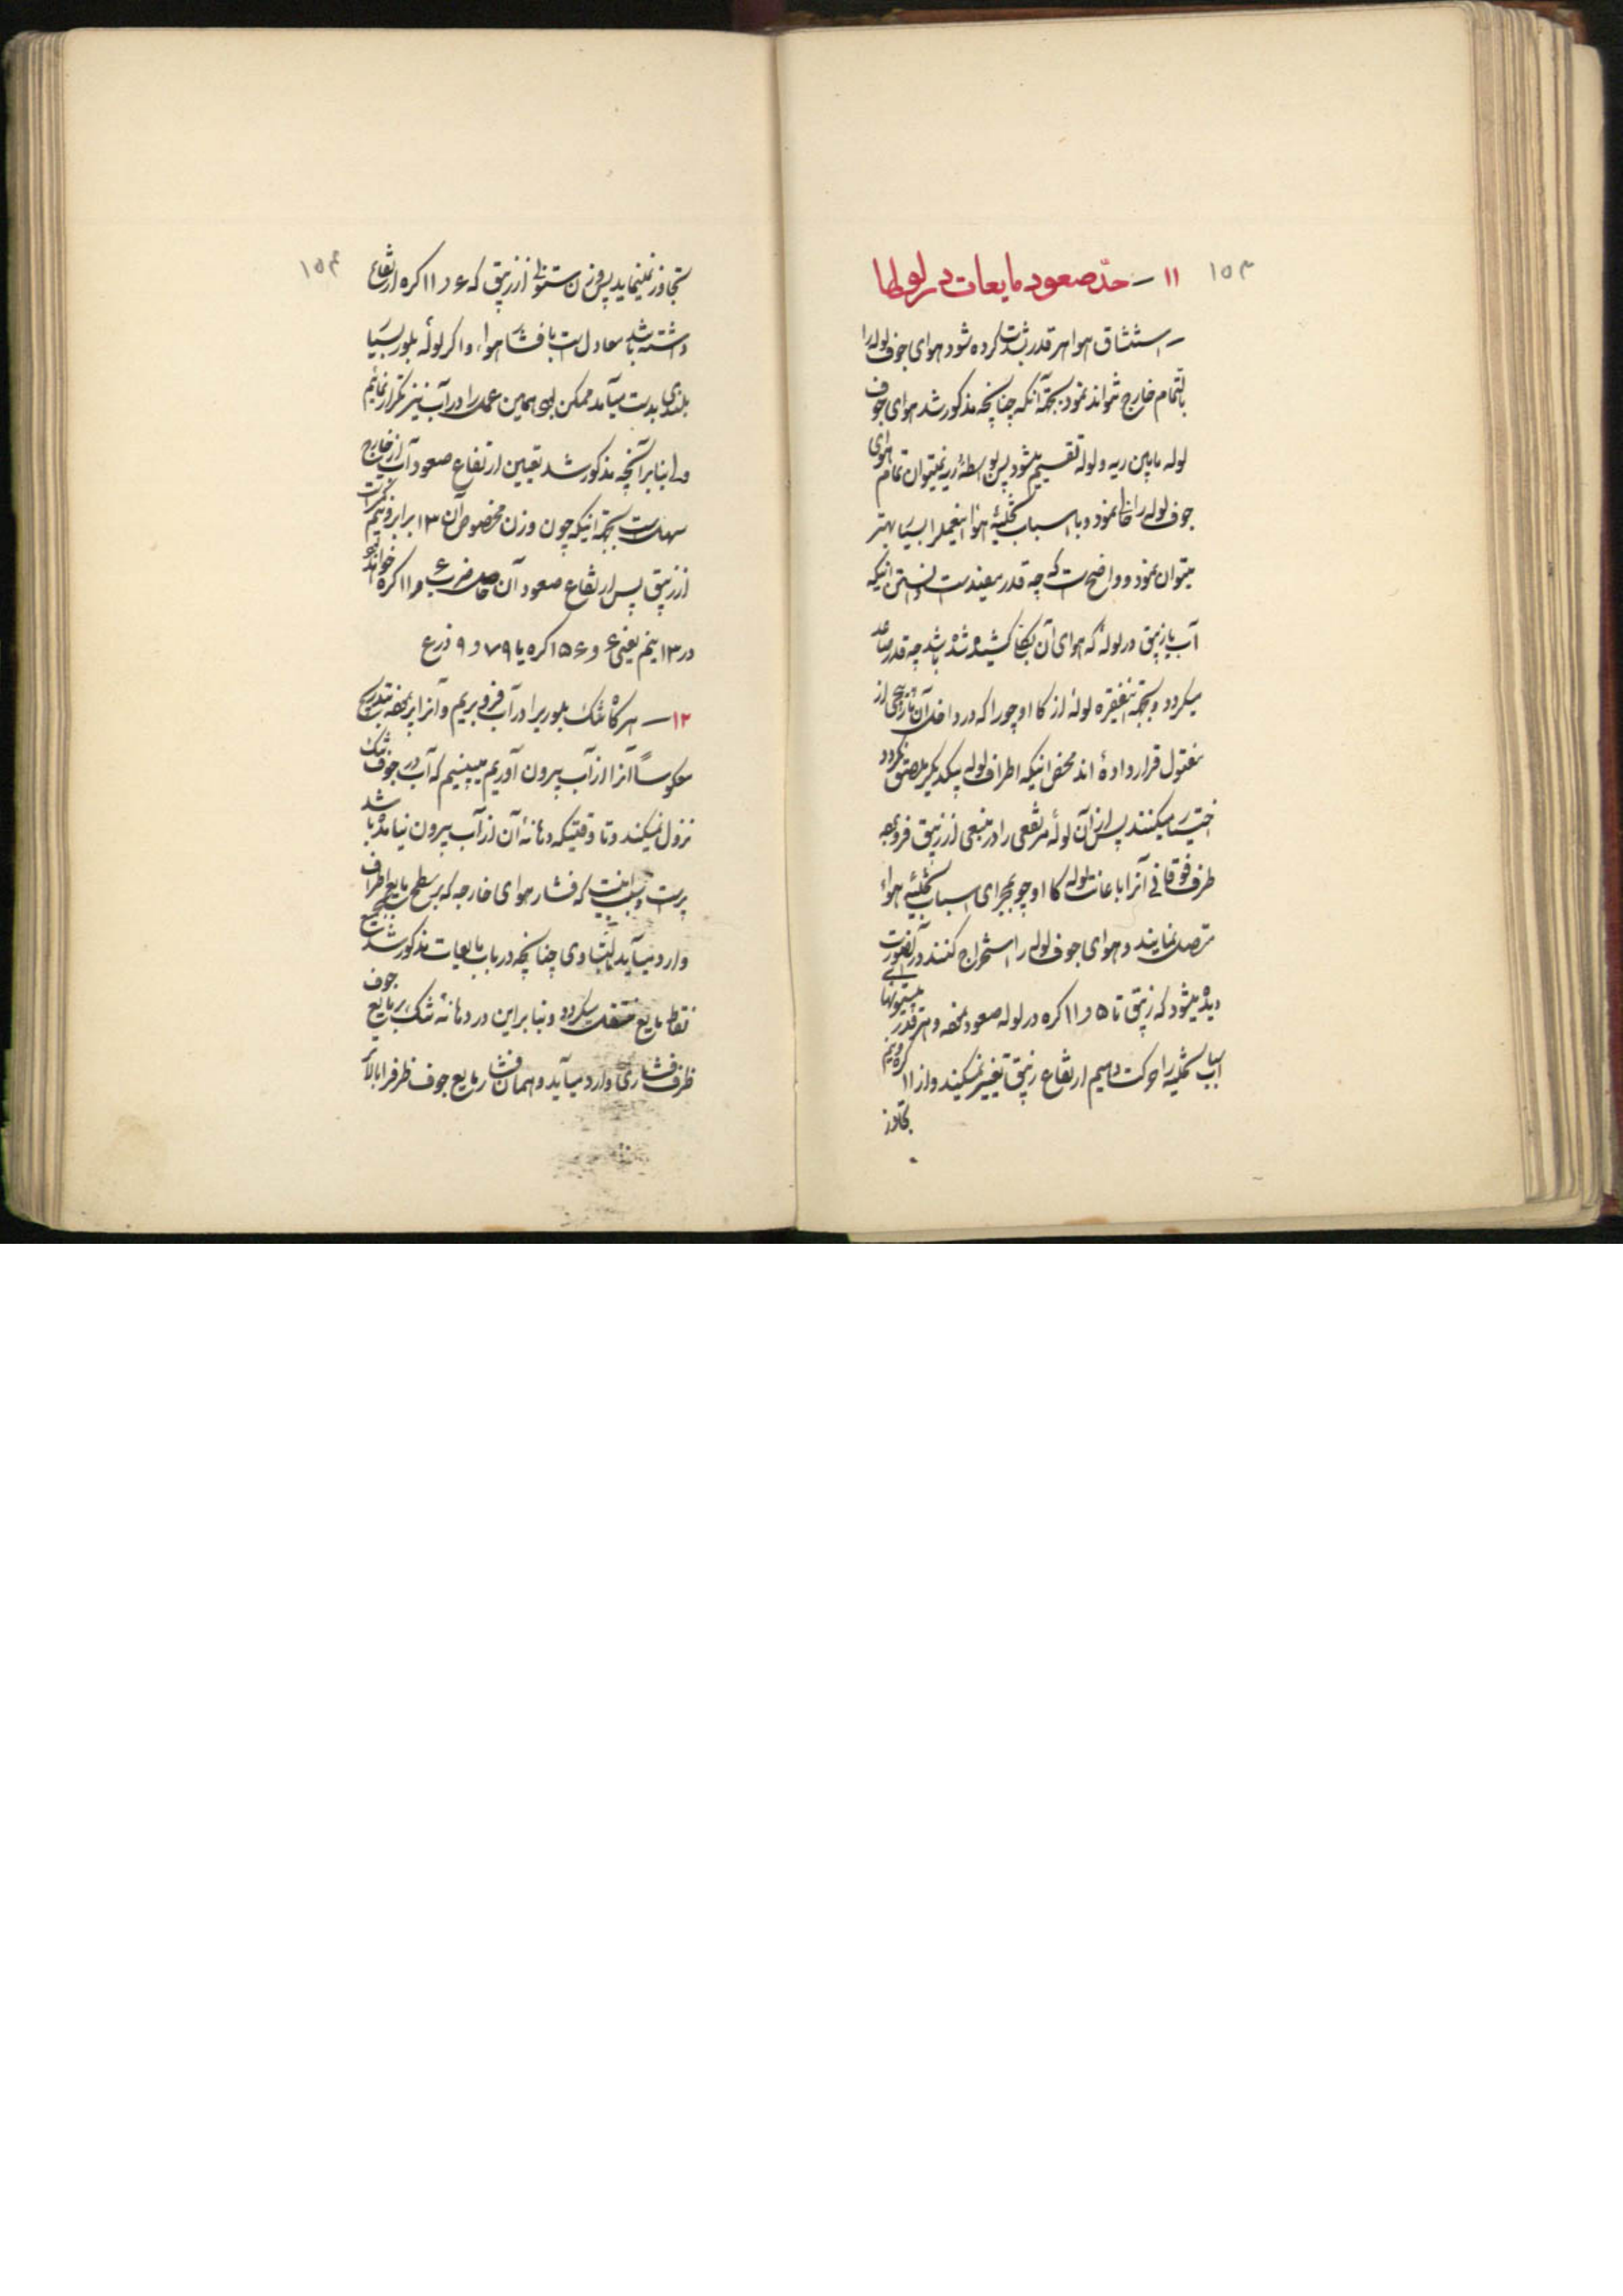 ۱۵۳
۱۱ – حدّ صعود مایعات در لولها
– استنشاق هوا هر قدر بشدت کرده شود هوای جوف لوله را
بالتمام خارج نتواند نمود بجهة آنکه چنانچه مذکور شد هوای جوف
لوله مابین ریه و لوله تقسیم میشود پس بواسطهٔ ریه نمیتوان تمام هوای
جوف لوله را خالی نمود و با اسباب تخلیهٔ هوا اینعمل را بسیار بهتر
میتوان نمود و واضح است که چه قدر مفید است دانستن اینکه
آب یا زیبق در لولهٔ که هوای آن بکلی کشیده شده باشد چه قدر صاعد
میگردد و بجهة اینفقره لولهٔ از کااوچو را که در داخل آن مارپیچی از
مفتول قرار داده اند محض اینکه اطراف لوله بیکدیگر ملصق نگردد
اختیار میکنند پس از آن لولهٔ مرتفعی را در منبعی از زیبق فرو برده
طرف فوقانی آنرا باعانت لوله کااوچو بمجرای اسباب تخلیهٔ هواء
متصل نمایند و هوای جوف لوله را استخراج کنند در آنصورت
دیده میشود که زیبق تا ۵ و ۱۱ کره در لوله صعود نموده و هر قدر پیستونهای
اسباب تخلیه را حرکت دهیم ارتفاع زیبق تغییر نمیکند و از ۱۱ کره و نیم
تجاوز
۱۵۴
تجاوز نمینماید پس وزن ستونی از زیبق که ۶ و ۱۱ کره ارتفاع
داشته باشد معادل است با فشار هوا، و اگر لولهٔ بلور بسیار
بلندی بدست میآمد ممکن بود همین عمل را در آب نیز تکرار نمائیم
ولی بنابر آنچه مذکور شد تعیین ارتفاع صعود آب از خارج
سهل است بجهة اینکه چون وزن مخصوص آن ۱۳ برابر و نیم کمتر است
از زیبق پس ارتفاع صعود آن حاصل ضرب ۶ و ۱۱ کره خواهد بود
در ۱۳ و نیم یعنی ۶ و ۱۵۶ کره یا ۷۹ و ۹ ذرع
۱۲ – هر گاه تنگ بلوری را در آب فرو بریم و آنرا پر نموده بتدریج
معکوساً آنرا از آب بیرون آوریم میبینیم که آب در جوف تنگ
نزول نمیکند و تا وقتیکه دهانهٔ آن از آب بیرون نیامده باشد
پر است و سبب اینست که فشار هوای خارجه که بر سطح مایع اطراف
وارد میآید بالتساوی چنانچه در باب مایعات مذکور شد بجمیع
نقاط مایع منتقل میگردد و بنابراین در دهانهٔ تنگ بر مایع جوف
ظرف فشاری وارد میآید و همان فشار مایع جوف ظرف را بالا